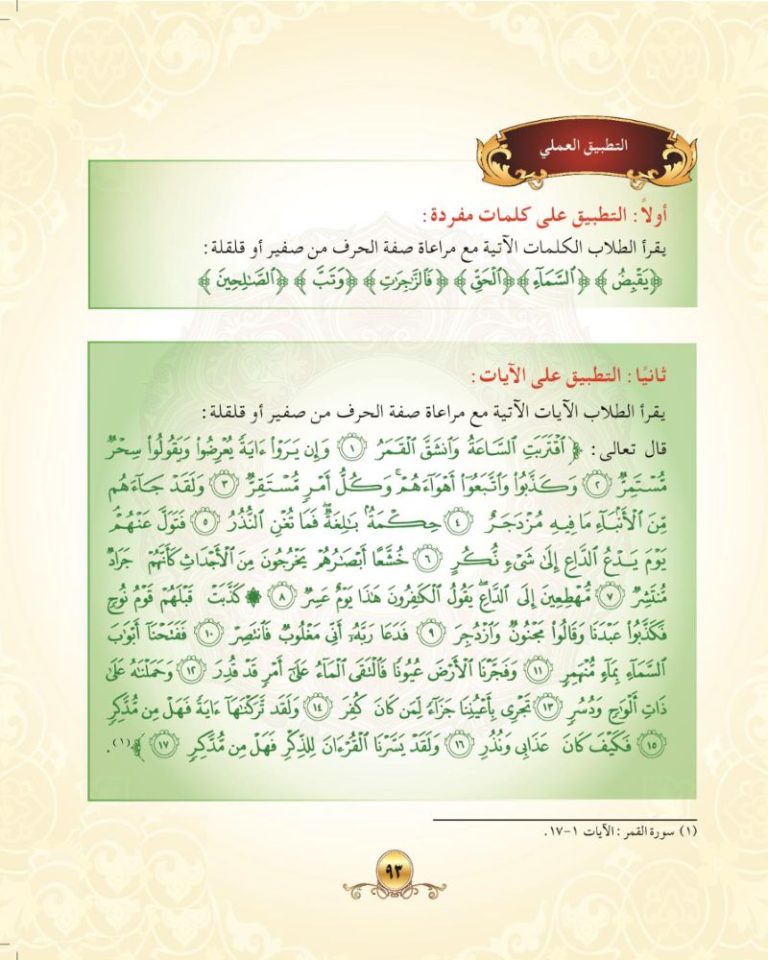 التطبيق العملي
أولاً : التطبيق على كلمات مفردة :
يقرأ الطلاب الكلمات الآتية مع مراعاة صفة الحرف من صفير أو قلقلة :
﴿يَقْبِضُ﴾ ﴿ٱلسَّمَآءِ﴾ ﴿ٱلْحَقِّ﴾ ﴿فَٱلزَّٰجِرَٰتِ﴾ ﴿وَتَبَّ﴾ ﴿ٱلصَّٰلِحِينَ﴾
ثانيًا : التطبيق على الآيات :
يقرأ الطلاب الآيات الآتية مع مراعاة صفة الحرف من صفير أو قلقلة :
قال تعالى : ﴿ ٱقْتَرَبَتِ ٱلسَّاعَةُ وَٱنشَقَّ ٱلْقَمَرُ ۝١ وَإِن يَرَوْا۟ ءَايَةً يُعْرِضُوا۟ وَيَقُولُوا۟ سِحْرٌ
مُّسْتَمِرٌّ ۝٢ وَكَذَّبُوا۟ وَٱتَّبَعُوٓا۟ أَهْوَآءَهُمْ ۚ وَكُلُّ أَمْرٍ مُّسْتَقِرٌّ ۝٣ وَلَقَدْ جَآءَهُم
مِّنَ ٱلْأَنۢبَآءِ مَا فِيهِ مُزْدَجَرٌ ۝٤ حِكْمَةٌۢ بَٰلِغَةٌ ۖ فَمَا تُغْنِ ٱلنُّذُرُ ۝٥ فَتَوَلَّ عَنْهُمْ ۘ
يَوْمَ يَدْعُ ٱلدَّاعِ إِلَىٰ شَىْءٍ نُّكُرٍ ۝٦ خُشَّعًا أَبْصَٰرُهُمْ يَخْرُجُونَ مِنَ ٱلْأَجْدَاثِ كَأَنَّهُمْ جَرَادٌ
مُّنتَشِرٌ ۝٧ مُّهْطِعِينَ إِلَى ٱلدَّاعِ ۖ يَقُولُ ٱلْكَٰفِرُونَ هَٰذَا يَوْمٌ عَسِرٌ ۝٨ ۞ كَذَّبَتْ قَبْلَهُمْ قَوْمُ نُوحٍ
فَكَذَّبُوا۟ عَبْدَنَا وَقَالُوا۟ مَجْنُونٌ وَٱزْدُجِرَ ۝٩ فَدَعَا رَبَّهُۥٓ أَنِّى مَغْلُوبٌ فَٱنتَصِرْ ۝١٠ فَفَتَحْنَآ أَبْوَٰبَ
ٱلسَّمَآءِ بِمَآءٍ مُّنْهَمِرٍ ۝١١ وَفَجَّرْنَا ٱلْأَرْضَ عُيُونًا فَٱلْتَقَى ٱلْمَآءُ عَلَىٰٓ أَمْرٍ قَدْ قُدِرَ ۝١٢ وَحَمَلْنَٰهُ عَلَىٰ
ذَاتِ أَلْوَٰحٍ وَدُسُرٍ ۝١٣ تَجْرِى بِأَعْيُنِنَا جَزَآءً لِّمَن كَانَ كُفِرَ ۝١٤ وَلَقَد تَّرَكْنَٰهَآ ءَايَةً فَهَلْ مِن مُّدَّكِرٍ
۝١٥ فَكَيْفَ كَانَ عَذَابِى وَنُذُرِ ۝١٦ وَلَقَدْ يَسَّرْنَا ٱلْقُرْءَانَ لِلذِّكْرِ فَهَلْ مِن مُّدَّكِرٍ ۝١٧ ﴾(١).
(١) سورة القمر : الآيات ١-١٧.
٩٣